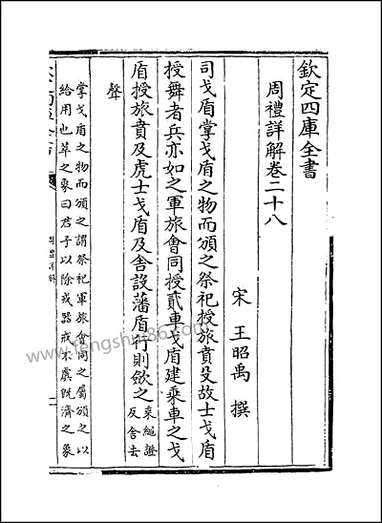 欽定四庫全書
周禮詳解卷二十八
宋 王昭禹 撰
司戈盾掌戈盾之物而頒之祭祀授旅賁殳故士戈盾
授舞者兵亦如之軍旅會同授貳車戈盾建乗車之戈
盾授旅賁及虎士戈盾及舍設藩盾行則斂之乗繩證
反舍去
聲
掌戈盾之物而頒之謂祭祀軍旅會同之屬頒之以
給用也萃之象曰君子以除戎器戒不虞既濟之象
周禮詳解
www.fengshui86.com